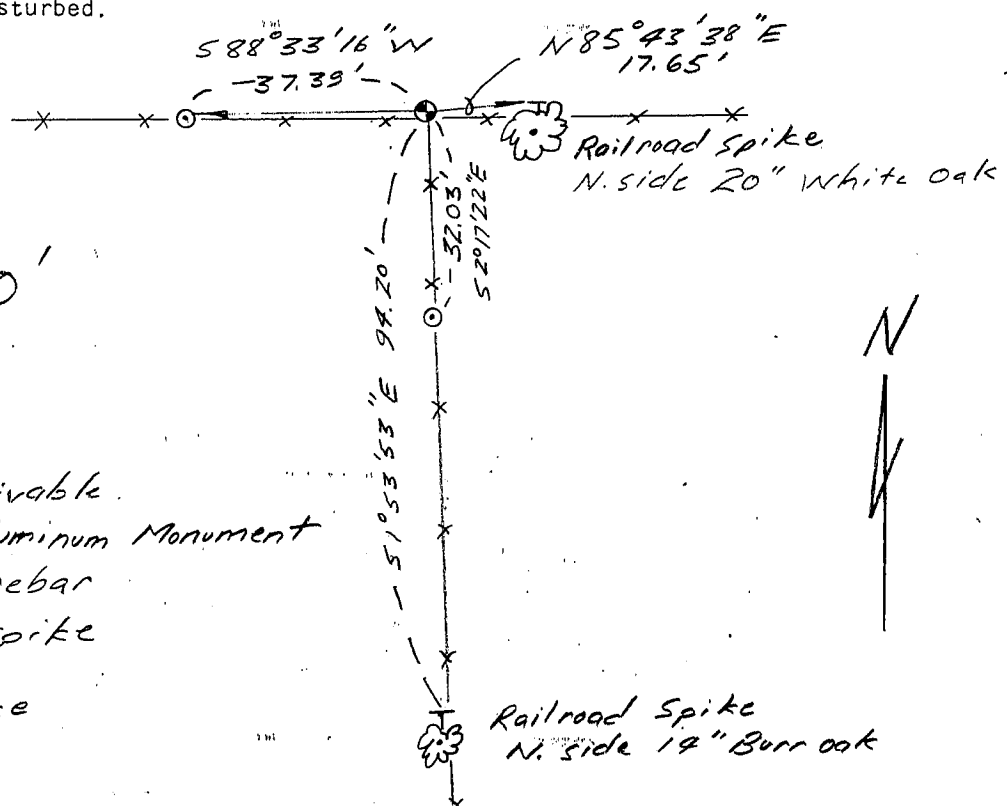 sturbed.
S 88°33'16"W
37.39'
N 85°43'38"E
17.65'
Railroad Spike
N. side 20" White Oak
32.03'
S 2°17'22"E
S 1°53'53"E 94.20'
N
ivable.
uminum Monument
ebar
spike
e
Railroad Spike
N. side 14" Burr oak